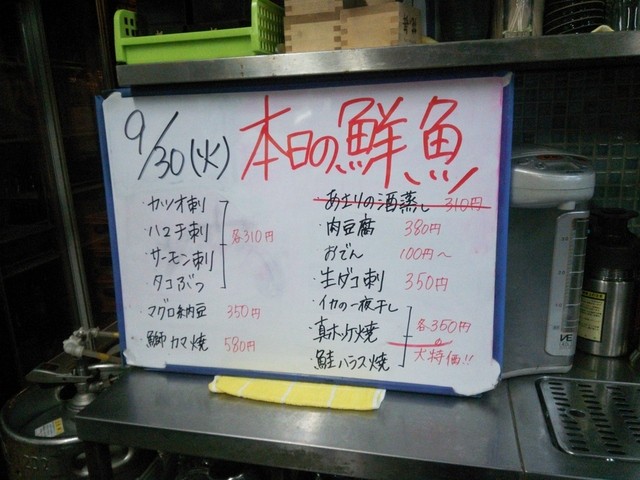 9/30(火) 本日の鮮魚
・カツオ刺
・ハマチ刺
・サーモン刺
・タコぶつ
各310円
・マグロ納豆 350円
・鰤カマ焼 580円
・あさりの酒蒸し 310円
・肉豆腐 380円
おでん 100円〜
・生ダコ刺 350円
・イカの一夜干し
・真ホッケ焼
・鮭ハラス焼
各350円
大特価!!